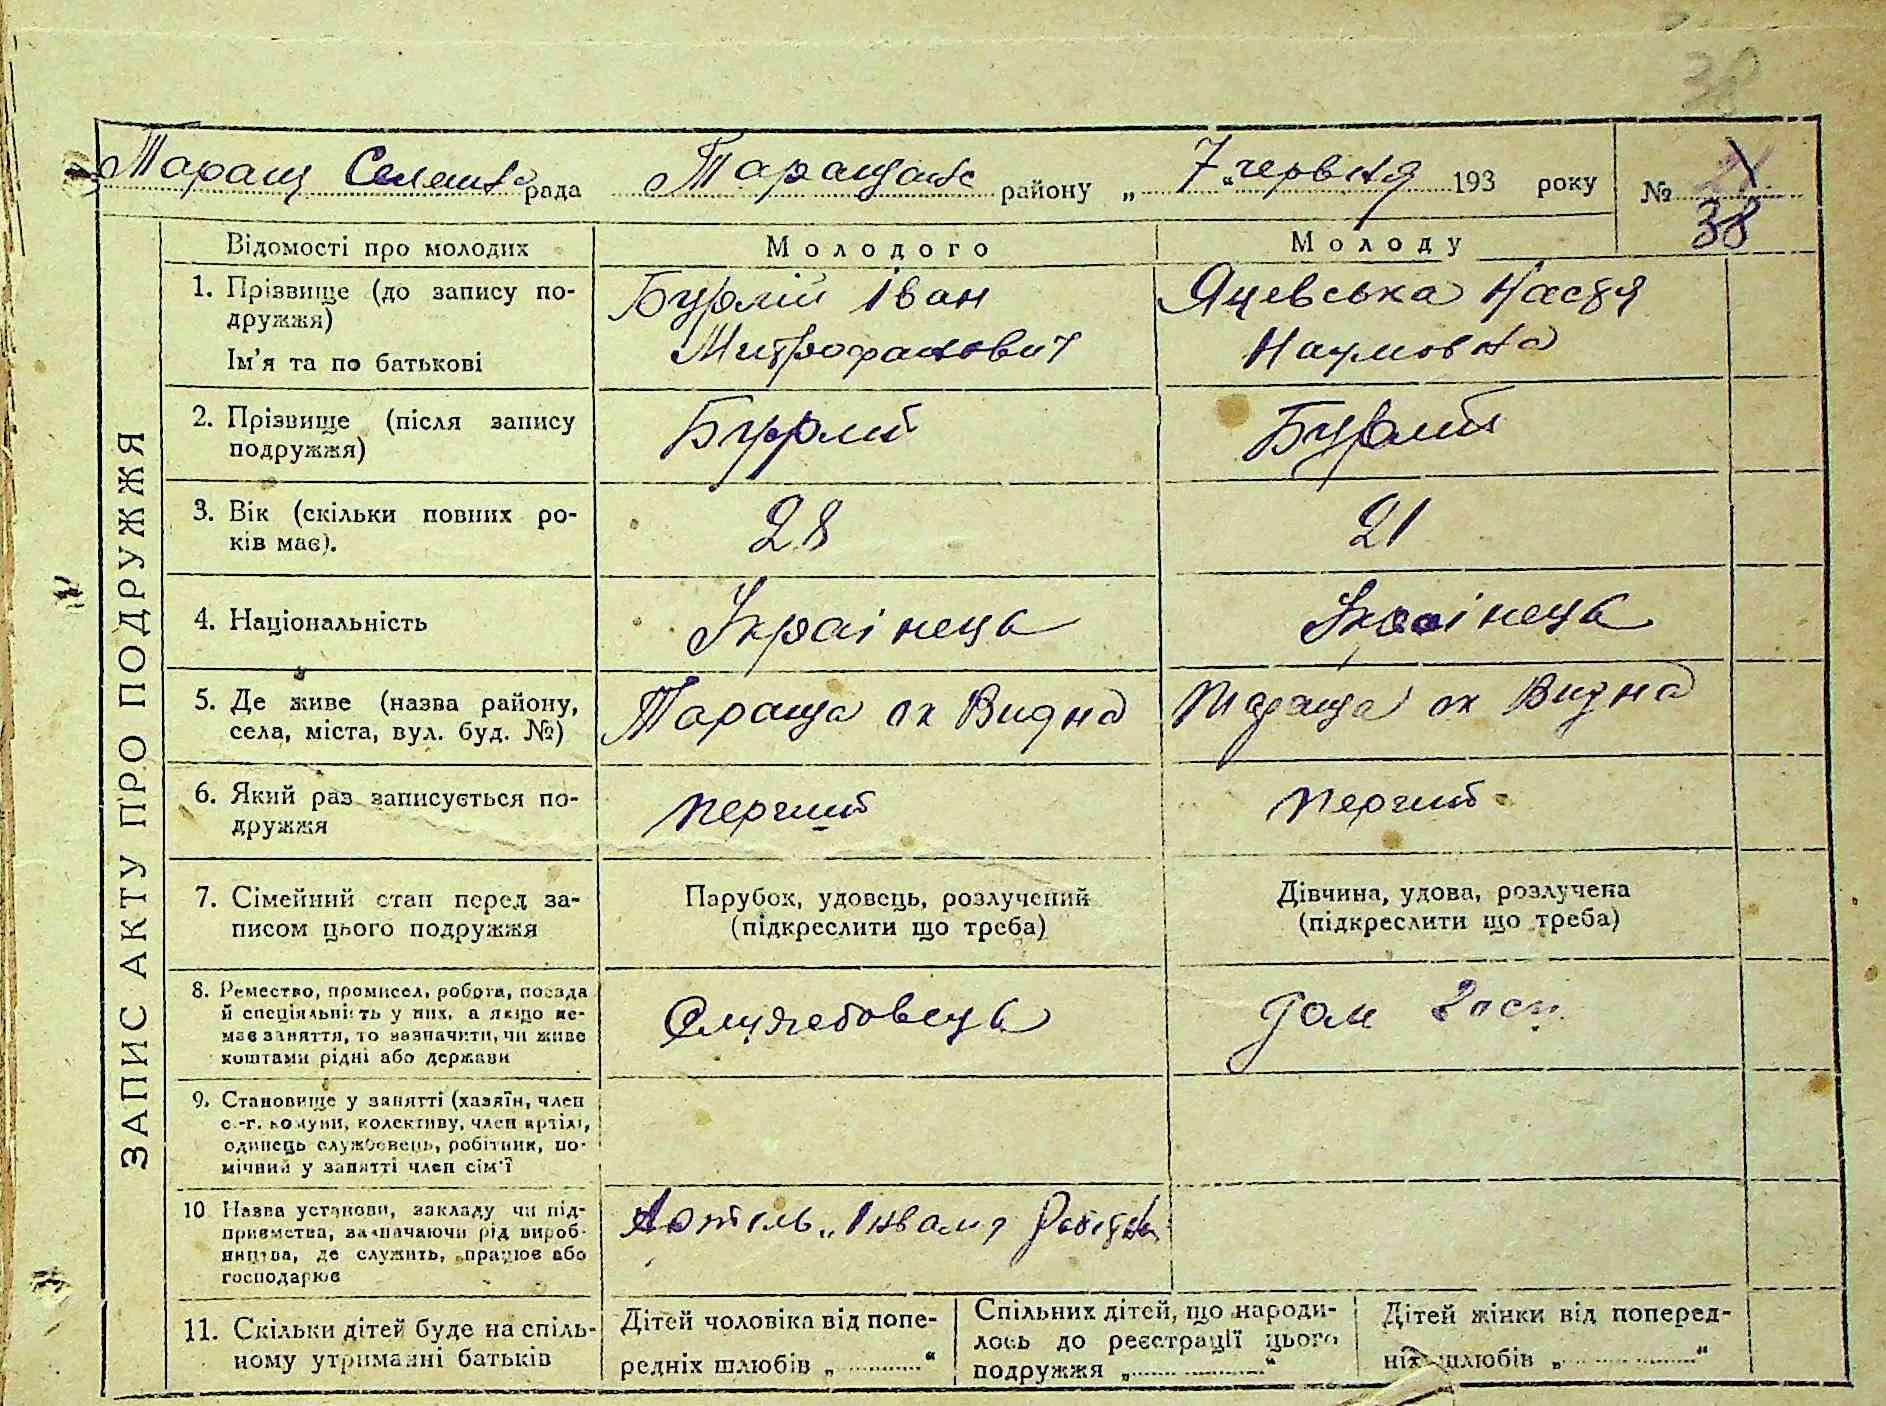 38
Таращ Селешна рада Таращанс району „ 7 " червня 193 року №
38
ЗАПИС АКТУ ПРО ПОДРУЖЖЯ
Відомості про молодих Молодого Молоду
1. Прізвище (до запису по-
дружжя)
Ім'я та по батькові
Бурлій Іван
Митрофанович
Яцевська Настя
Наумовна
2. Прізвище (після запису
подружжя)
Бурлий
Бурлий
3. Вік (скільки повних ро-
ків має).
28
21
4. Національність
Українець
Українець
5. Де живе (назва району,
села, міста, вул. буд. №)
Тараща ок Видна
Тараща ок Видна
6. Який раз записується по-
дружжя
перший
перший
7. Сімейний стан перед за-
писом цього подружжя
Парубок, удовець, розлучений
(підкреслити що треба)
Дівчина, удова, розлучена
(підкреслити що треба)
8. Ремество, промисел, робота, посада
й спеціяльність у них, а якщо не-
має заняття, то зазначити, чи живе
коштами рідні або держави
Служебовець
Дом Госп.
9. Становище у занятті (хазяїн, член
с.-г. комуни, колективу, член артілі,
одинець службовець, робітник, по-
мічний у занятті член сім'ї
10 Назва установи, закладу чи під-
приємства, зазначаючи рід вироб-
ництва, де служить, працює або
господарює
Артіль „Інвалид
11. Скільки дітей буде на спіль-
ному утриманні батьків
Дітей чоловіка від попе-
редніх шлюбів „ "
Спільних дітей, що народи-
лось до реєстрації цього
подружжя „ "
Дітей жінки від поперед-
ніх шлюбів „ "